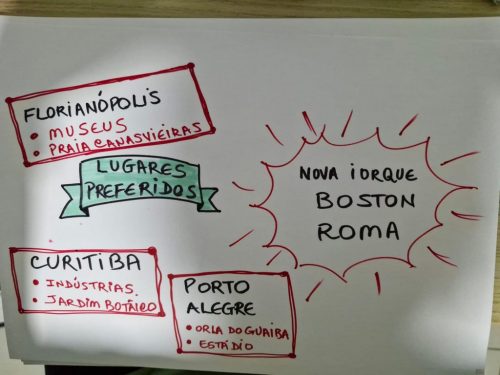 FLORIANÓPOLIS
• MUSEUS
• PRAIA CANASVIEIRAS
LUGARES
PREFERIDOS
NOVA IORQUE
BOSTON
ROMA
CURITIBA
• INDÚSTRIAS
• JARDIM BOTÂICO
PORTO
ALEGRE
• ORLA DO GUAIBA
• ESTÁDIO